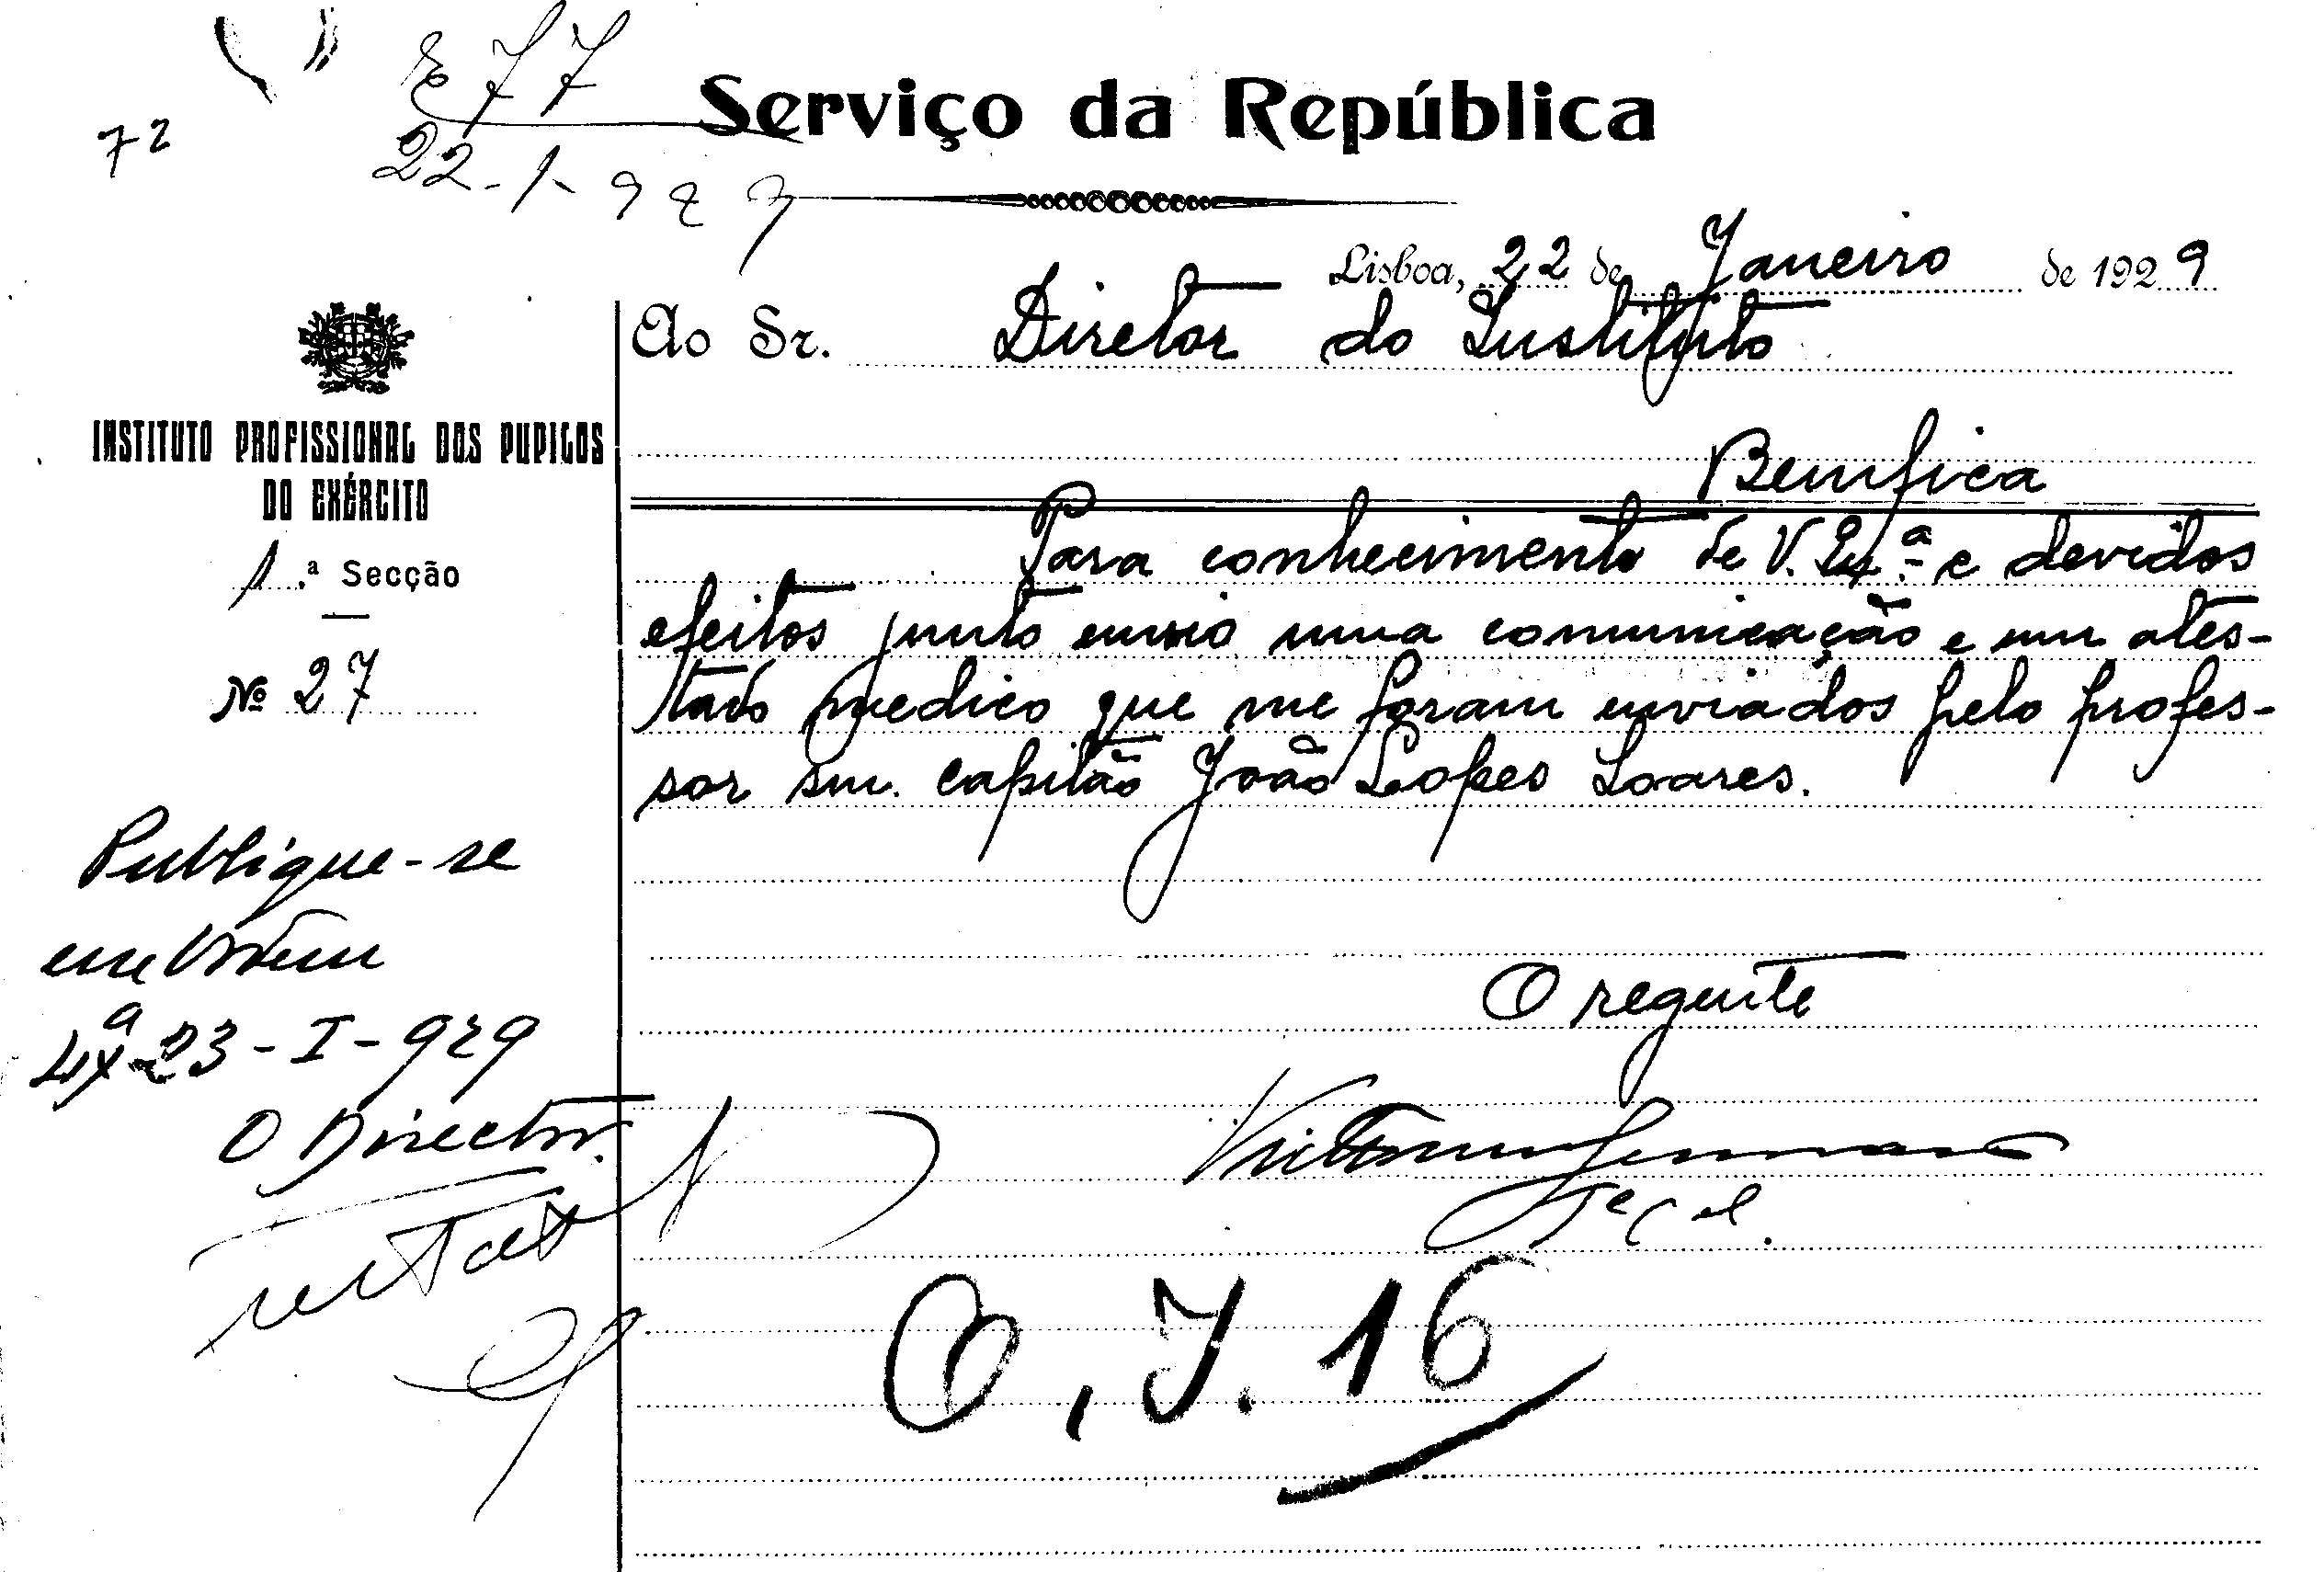 E 77
72
22-1-929
Serviço da República
Lisboa, 22 de Janeiro de 1929
Ao Sr. Diretor do Instituto
Bemfica
INSTITUTO PROFISSIONAL DOS PUPILOS
DO EXÉRCITO
1.ª Secção
Nº 27
Para conhecimento de V. Exª. e devidos
efeitos junto envio uma comunicação e um ates-
tado medico que me foram enviados pelo profes-
sor snr. capitão João Lopes Soares.
O regente
Tᵉ Cᵉl.
Publique-se
em Ordem
Lxª 23-I-929
O Director.
O.I.16